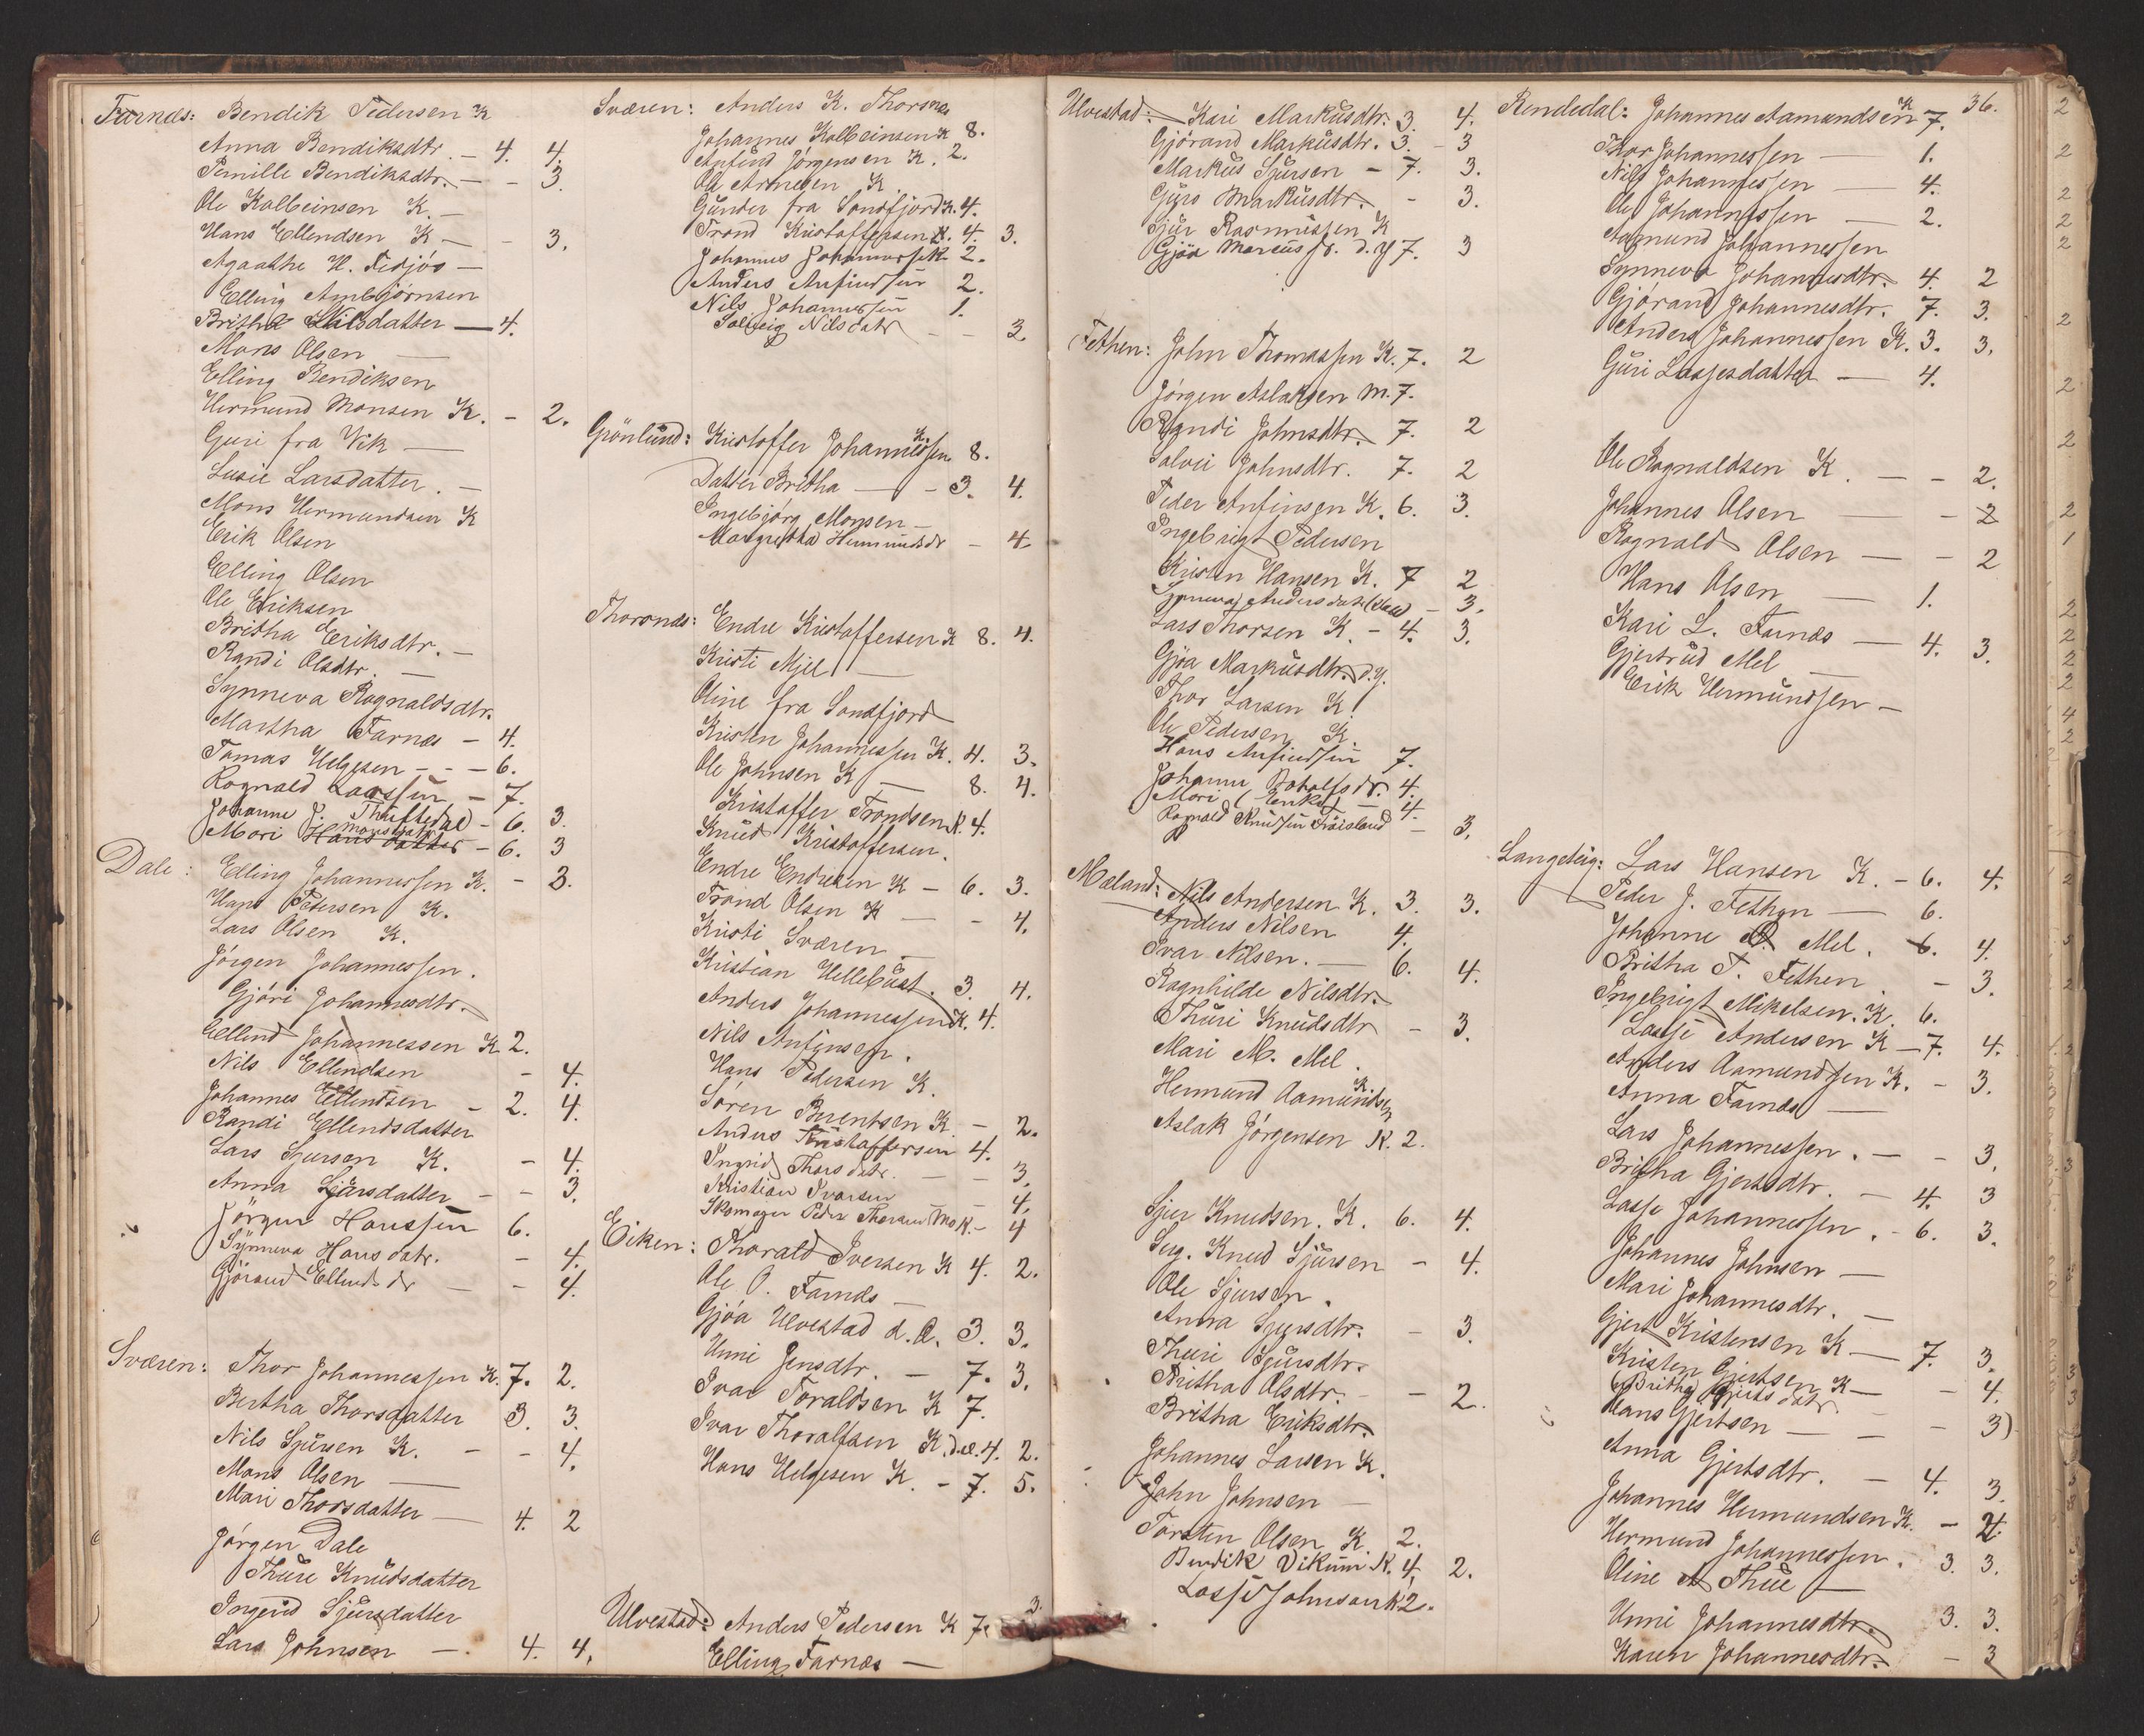 Farnæs: Bendik Pedersen K
Anna Bendiksdtr. – 4. 4.
Pernille Bendiksdtr. – – 3.
Ole Kolbeinsen K. –
Hans Ellendsen K – – 3.
Agaathe H. –
Elling Ambjörnsen
Britha Nilsdatter — 4.
Mons Olsen —
Elling Bendiksen
Hermund Monsen K. – 2.
Guri fra Vik —
Susie Larsdatter. –
Mons Hermundsen K
Erik Olsen
Elling Olsen
Ole Eriksen
Britha Eriksdtr. –
Randi Olsdtr. –
Synneva Rognaldsdtr.
Martha Farnæs – 4.
Tomas Helgesen – – – 6.
Rognald Larssen – 7.
Johanne J. – 6. 3.
Mori Monsdatter – 6. 3
Dale: Elling Johannessen K. – 3.
Hans Pedersen K.
Lars Olsen K.
Jörgen Johannessen.
Gjöri Johannesdtr.
Ellend Johannessen K 2.
Nils Ellendsen – 4.
Johannes Ellendsen – 2. 4.
Randi Ellendsdatter
Lars Sjursen K. – 4.
Anna Sjürsdatter – – 3.
Jörgen Hanssen 6.
Synneva Hansdatr. – 4.
Gjörand Ellendsdr — – 4.
Sværen: Thor Johannessen K. 7. 2.
Bertha Thorsdatter 3. 3.
Nils Sjürsen K. – – 4.
Mons Olsen —
Mari Thorsdatter — 4. 2
Jörgen Dale
Thure Knüdsdatter
Ingerid Sjürsdatter
Lars Johnsen –. 4. 4.
Sværen: Anders K. Thorsnæs
Johannes Kolbeinsen K 8.
Anfind Jörgensen K. 2.
Ole Arnesen K.
Günder fra Söndfjord K. 4.
Trond Kristoffersen K. 4. 3.
Johannes Johannessen K 2.
Anders Anfindsen 2.
Nils Johannessen 1.
Solveig Nilsdatr – – 3
Grönlünd: Kristoffer Johannessen K. 8.
Datter Britha — – 3. 4.
Ingebjörg Monsen –
Margretha Hermundsdr – 4
Thorsnæs: Endre Kristoffersen K 8. 4.
Kristi Mjel —
Oline fra Sondfjord
Kristen Johannessen K. 4. 3.
Ole Johnsen K — 8. 4.
Kristoffer Trondsen K. 4.
Knüd Kristoffersen.
Endre Endresen K – 6. 3.
Trond Olsen K — – 4.
Kristi Sværen –
Kristian Hellebüst. 3. 4.
Anders Johannessen K. 4.
Nils Anfinsen.
Hans Pedersen K.
Sören Berentsen K. – 2.
Anders Kristoffersen 4.
Ingrid Thorsdatr. — – 3.
Kristian Ivarsen – – 4.
Skomager Peder Thorsen Mo K. – 4
Eiken: Thorald Iversen K 4. 2.
Ole O. Farnæs –
Gjöa Ulvestad d. Æ. 3. 3.
Unni Jensdtr. – 7. 3.
Ivar Toraldsen K 7.
Ivar Thoralfsen K. d.æ. 4. 2.
Hans Helgesen K. – 7. 5.
Ulvestad: Anders Pedersen K 7. 3.
Elling Farnæs —
Ulvestad: Kari Markusdtr. 3. 4.
Gjörand Markusdtr. 3. – 3
Markus Sjursen – 7. 3.
Guro Markusdtr. – 3.
Sjur Rasmussen K
Gjöa Marcusdr. d. y 7. 3
Fethen: John Thomassen K. 7. 2
Jörgen Aslaksen M. 7.
Randi Johnsdtr. 7. 2
Solvei Johnsdtr. 7. 2
Peder Anfinsen K. 6. 3.
Ingebrigt Pedersen
Kristen Hansen K. 7 2
Synneva Andersdatr – 3.
Lars Thorsen K. – 4. 3.
Gjöa Markusdtr. d.y.
Thor Larsen K.
Ole Pedersen K.
Hans Anfindsen 7.
Johanne Botolfsdr. 4.
Mari (Enke) – 4.
Rognald Knudsen – 3.
Mæland: Nils Andersen K. 3. 3.
Anders Nilsen 4.
Ivar Nilsen. — 6. 4.
Ragnhilde Nilsdtr.
Thuri Knudsdtr – 3.
Mari M. Mel.
Hermund Aamundsen K.
Aslak Jörgensen K. 2.
Sjur Knudsen. K. 6. 4.
Serg. Knud Sjürsen – 4.
Ole Sjursen.
Anna Sjursdtr. – 3.
Thuri Sjursdtr.
Britha Olsdtr. – – 2.
Britha Eriksdtr.
Johannes Larsen K.
John Johnsen —
Torsten Olsen K. 2.
Bendik Vikum K. 4. 2.
Lasse Johnsen K 2.
36.
Rendedal: Johannes Aamundsen K 7.
Thor Johannessen — 1.
Nils Johannessen — 4.
Ole Johannessen — 2.
Aamund Johannessen
Synneva Johannesdtr. 4. 2
Gjörand Johannesdtr. 7. 3.
Anders Johannessen K. 3. 3.
Guri Lassesdatter — 4.
Ole Rognaldsen K. – – 2.
Johannes Olsen – 2
Rognald Olsen — – 2
Hans Olsen — 1.
Kari L. Farnæs — 4. 3.
Gjertrüd Mel —
Erik Hermundsen –
Langeteig: Lars Hansen K. – 6. 4.
Peder J. Fethen — 6.
Johanne Mel. 6. 4.
Britha T. Fethen. – 3.
Ingebrigt Mikelsen. K. 6.
Lasse Andersen K – 7. 4.
Anders Aamundsen K. – 3.
Anna Farnæs —
Lars Johannessen. – – 3.
Britha Gjertsdtr. – 4. 3
Lasse Johannessen. – 6. 3.
Johannes Johnsen —
Mari Johannesdtr. –
Gjert Kristensen K — 7. 3.
Kristen Gjertsen K — – 4.
(Britha Gjertsdatr. –
Hans Gjertsen – – – 3)
Anna Gjertsdtr. – 4. 3.
Johannes Hermundsen K. – 4.
Hermund Johannessen. 3. 3.
Oline Thue —
Unni Johannesdtr. 3. 3.
Karen Johannesdtr. – 3